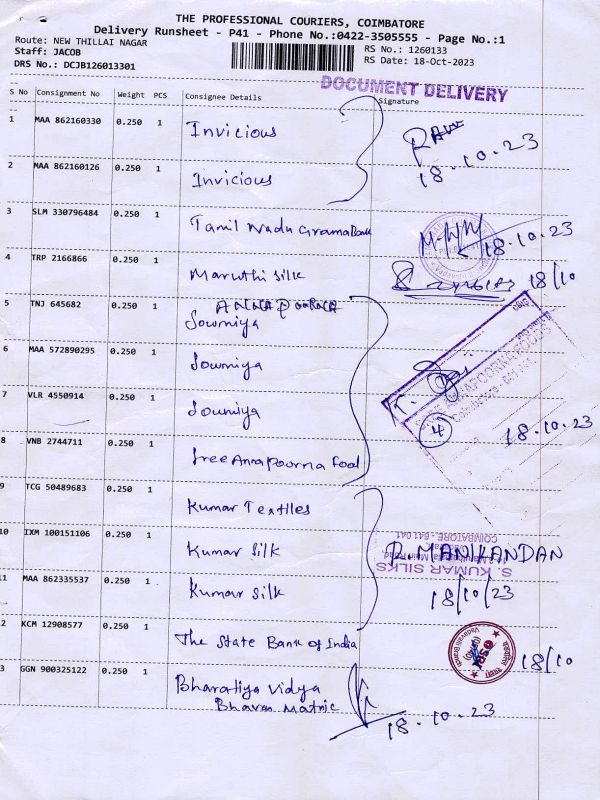 THE PROFESSIONAL COURIERS, COIMBATORE
Delivery Runsheet - P41 - Phone No.:0422-3505555 - Page No.:1
Route: NEW THILLAI NAGAR
RS No.: 1260133
Staff: JACOB
RS Date: 18-Oct-2023
DRS No.: DCJB126013301
DOCUMENT DELIVERY
S No Consignment No Weight PCS Consignee Details Signature
1 MAA 862160330 0.250 1 Invicious
18.10.23
2 MAA 862160126 0.250 1 Invicious
3 SLM 330796484 0.250 1 Tamil Nadu Grama Bank 18.10.23
4 TRP 2166866 0.250 1 Maruthi Silk 18/10
5 TNJ 645682 0.250 1 Sowmiya
6 MAA 572890295 0.250 1 Sowmiya
7 VLR 4550914 1 Sowmiya 4 18.10.23
8 VNB 2744711 0.250 1 Sree Annapoorna Food
9 TCG 50489683 0.250 1 Kumar Textiles
10 IXM 100151106 0.250 1 Kumar Silk R. MANIKANDAN
S. KUMAR SILKS
COIMBATORE - 641 041
11 MAA 862335537 0.250 1 Kumar Silk 18/10/23
2 KCM 12908577 0.250 1 The State Bank of India 18/10
3 GGN 900325122 0.250 1 Bharatiya Vidya
Bhavan Matric 18.10.23